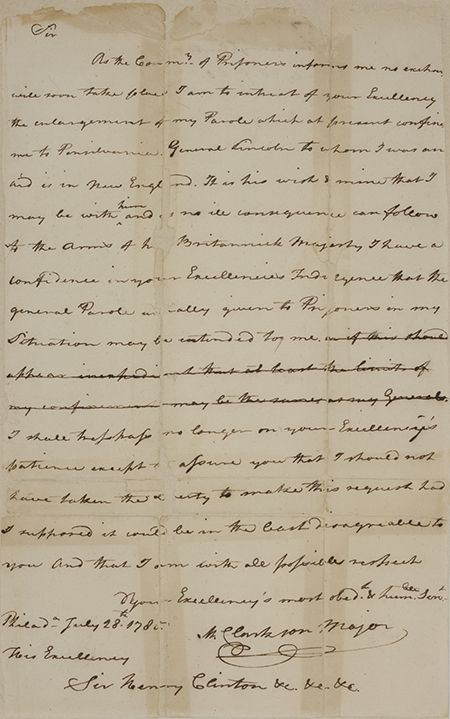 Sir
As the Comm.ʸ of Prisoners informs me no exchan
will soon take place I am to intreat of your Excellency
the enlargement of my Parole which at present confine
me to Pensilvania. General Lincoln to whom I was an
aid is in New England. It is his wish & mine that I
may be with him and as no ill consequence can follow
to the Arms of h Britannick Majesty I have a
confidence in your Excellencies Indulgence that the
general Parole usually given to Prisoners in my
Situation may be extended to me. or if this should
appear inexpedient that at least the limits of
my confinement may be the same as my Generals.
I shall trespass no longer on your Excellency's
patience except to assure you that I should not
have taken the liberty to make this request had
I supposed it could be in the least disagreable to
you And that I am with all possible respect
Your Excellency's most obed.ᵗ & hum.ᵇˡᵉ Serv.ᵗ
Philad.ᵃ July 28.ᵗʰ 178
M. Clarkson Major
His Excellency
Sir Henry Clinton &c. &c. &c.